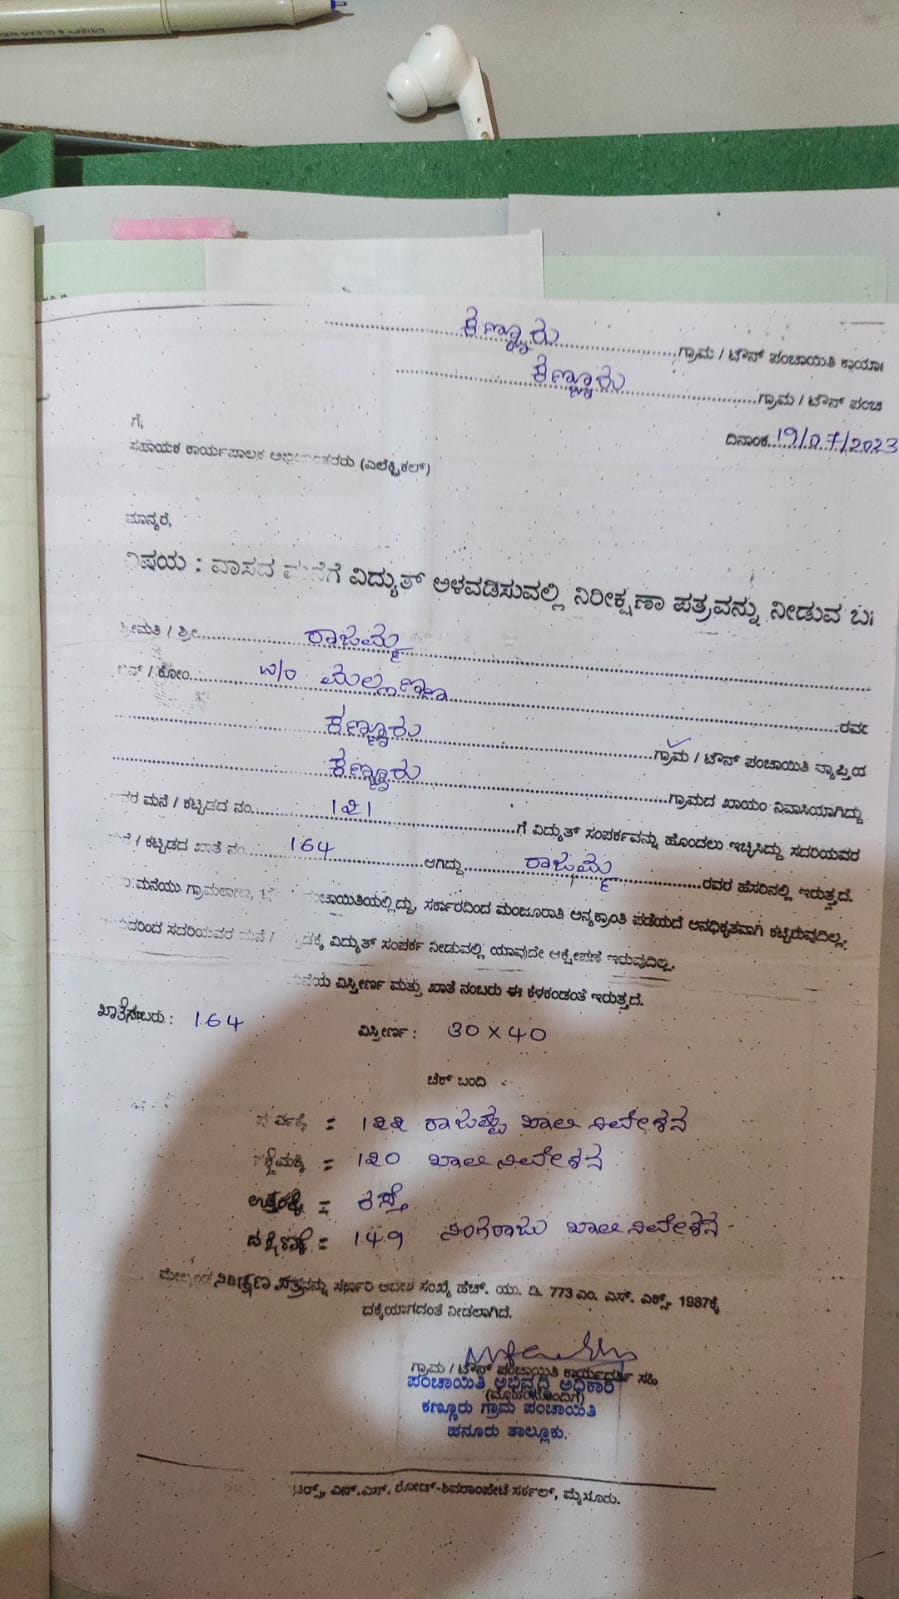 ಕಣ್ಣೂರು ಗ್ರಾಮ / ಟೌನ್ ಪಂಚಾಯಿತಿ ಕಾರ್ಯಾ
ಕಣ್ಣೂರು ಗ್ರಾಮ / ಟೌನ್ ಪಂಚ
ದಿನಾಂಕ 19/07/2023
ಗೆ,
ಸಹಾಯಕ ಕಾರ್ಯಪಾಲಕ (ಎಲೆಕ್ಟ್ರಿಕಲ್)
ಮಾನ್ಯರೆ,
ವಿಷಯ : ವಾಸದ ಮನೆಗೆ ವಿದ್ಯುತ್ ಅಳವಡಿಸುವಲ್ಲಿ ನಿರೀಕ್ಷಣಾ ಪತ್ರವನ್ನು ನೀಡುವ ಬ
ಶ್ರೀಮತಿ / ಶ್ರೀ ರಾಜಮ್ಮ
/ ಕೋಂ w/o ರವರ
ಕಣ್ಣೂರು ಗ್ರಾಮ / ಟೌನ್ ಪಂಚಾಯಿತಿ ವ್ಯಾಪ್ತಿಯ
ಕಣ್ಣೂರು ಗ್ರಾಮದ ಖಾಯಂ ನಿವಾಸಿಯಾಗಿದ್ದು
ಮನೆ / ಕಟ್ಟಡದ ನಂ 121 ಗೆ ವಿದ್ಯುತ್ ಸಂಪರ್ಕವನ್ನು ಹೊಂದಲು ಇಚ್ಛಿಸಿದ್ದು ಸದರಿಯವರ
/ ಕಟ್ಟಡದ ಖಾತೆ ನಂ 164 ಆಗಿದ್ದು ರಾಜಮ್ಮ ರವರ ಹೆಸರಿನಲ್ಲಿ ಇರುತ್ತದೆ.
ಮನೆಯು ಪಂಚಾಯಿತಿಯಲ್ಲಿದ್ದು, ಸರ್ಕಾರದಿಂದ ಮಂಜೂರಾತಿ ಅನ್ಯಕ್ರಾಂತಿ ಪಡೆಯದೆ ಅನಧಿಕೃತವಾಗಿ ಕಟ್ಟಿರುವುದಿಲ್ಲ.
ಸದರಿಯವರ ಮನೆ / ವಿದ್ಯುತ್ ಸಂಪರ್ಕ ನೀಡುವಲ್ಲಿ ಯಾವುದೇ ಆಕ್ಷೇಪಣೆ ಇರುವುದಿಲ್ಲ.
ಮನೆಯ ವಿಸ್ತೀರ್ಣ ಮತ್ತು ಖಾತೆ ನಂಬರು ಈ ಕೆಳಕಂಡಂತೆ ಇರುತ್ತದೆ.
ಖಾತೆನಂಬರು : 164 ವಿಸ್ತೀರ್ಣ : 30 x 40
ಚೆಕ್ ಬಂದಿ
ಪೂರ್ವಕ್ಕೆ = 122 ಖಾಲಿ ನಿವೇಶನ
ಪಶ್ಚಿಮಕ್ಕೆ = 120 ಖಾಲಿ ನಿವೇಶನ
ಉತ್ತರಕ್ಕೆ = ರಸ್ತೆ
ದಕ್ಷಿಣಕ್ಕೆ = 149 ನಿಂಗರಾಜು ಖಾಲಿ ನಿವೇಶನ
ಮೇಲ್ಕಂಡ ನಿರೀಕ್ಷಣ ಪತ್ರವನ್ನು ಸರ್ಕಾರಿ ಆದೇಶ ಸಂಖ್ಯೆ ಹೆಚ್. ಯು. ಡಿ. 773 ಎಂ. ಎಸ್. ಎಕ್ಸ್. 1987ಕ್ಕೆ
ದಕ್ಕೆಯಾಗದಂತೆ ನೀಡಲಾಗಿದೆ.
ಗ್ರಾಮ / ಟೌನ್ ಪಂಚಾಯಿತಿ ಕಾರ್ಯದರ್ಶಿ ಸಹಿ
(ಮೊಹರಿನೊಂದಿಗೆ)
ಪಂಚಾಯಿತಿ ಅಭಿವೃದ್ಧಿ ಅಧಿಕಾರಿ
ಕಣ್ಣೂರು ಗ್ರಾಮ ಪಂಚಾಯಿತಿ
ಹನೂರು ತಾಲ್ಲೂಕು.
ಎನ್.ಎಸ್. ರೋಡ್-ಶಿವರಾಂಪೇಟೆ ಸರ್ಕಲ್, ಮೈಸೂರು.